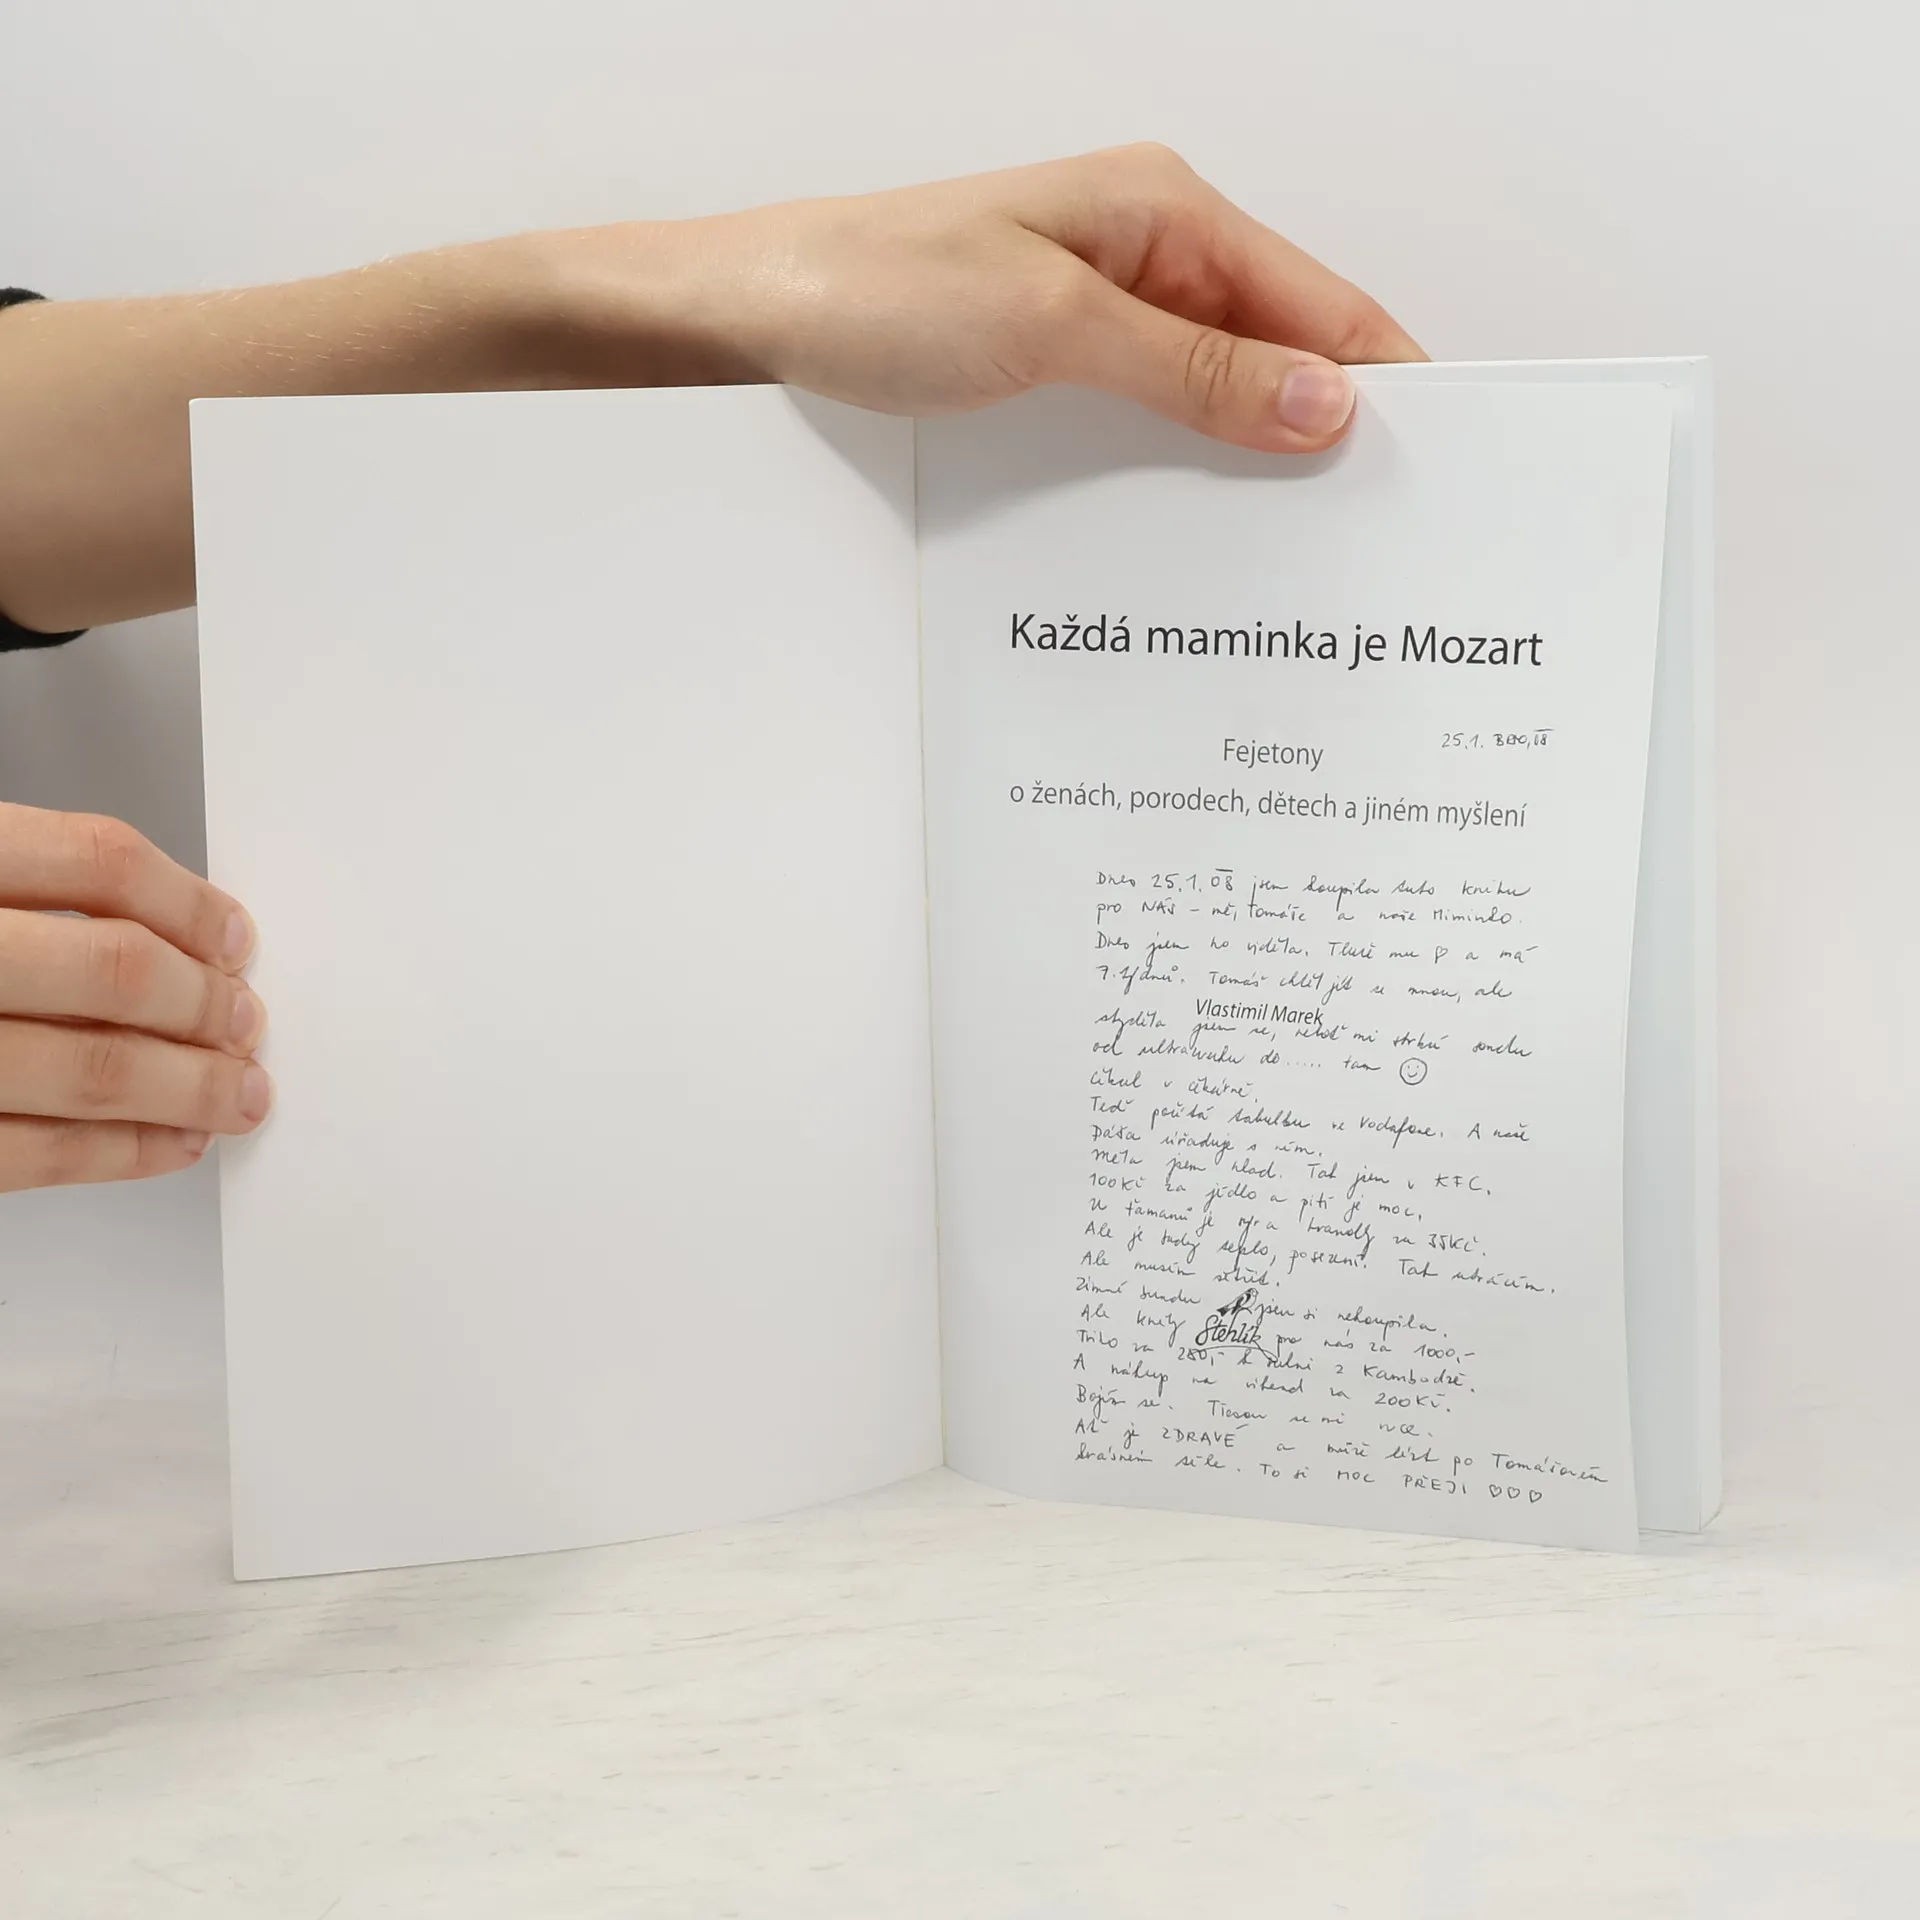 Každá maminka je Mozart
25.1. 08
Fejetony
o ženách, porodech, dětech a jiném myšlení
Dnes 25.1.08 jsem koupila tuto knihu
pro NÁS – mě, Tomáše a naše Miminko.
Dnes jsem ho viděla. Tluče mu ♡ a má
7. dnů. Tomáš chtěl jít se mnou, ale
Vlastimil Marek
styděla jsem se, neboť mi strká sondu
od ultrazvuku do..... tam ☺
čekal v čekárně.
Teď počítá tabulku ve Vodafone. A naše
Dáša úřaduje s ním.
Měla jsem hlad. Tak jsem v KFC.
100Kč za jídlo a pití je moc.
U ťamanů je sýr a hranolky za 35Kč.
Ale je tady teplo, posezení. Tak utrácím.
Ale musím šetřit.
Zimní bundu jsem si nekoupila.
Ale knihy pro nás za 1000,-
Stehlík
Triko za 280,- k sukni z Kambodže.
A nákup na víkend za 200Kč.
Bojím se. Třesou se mi ruce.
Ať je ZDRAVÉ a může lézt po Tomášovém
krásném těle. To si MOC PŘEJI ♡♡♡